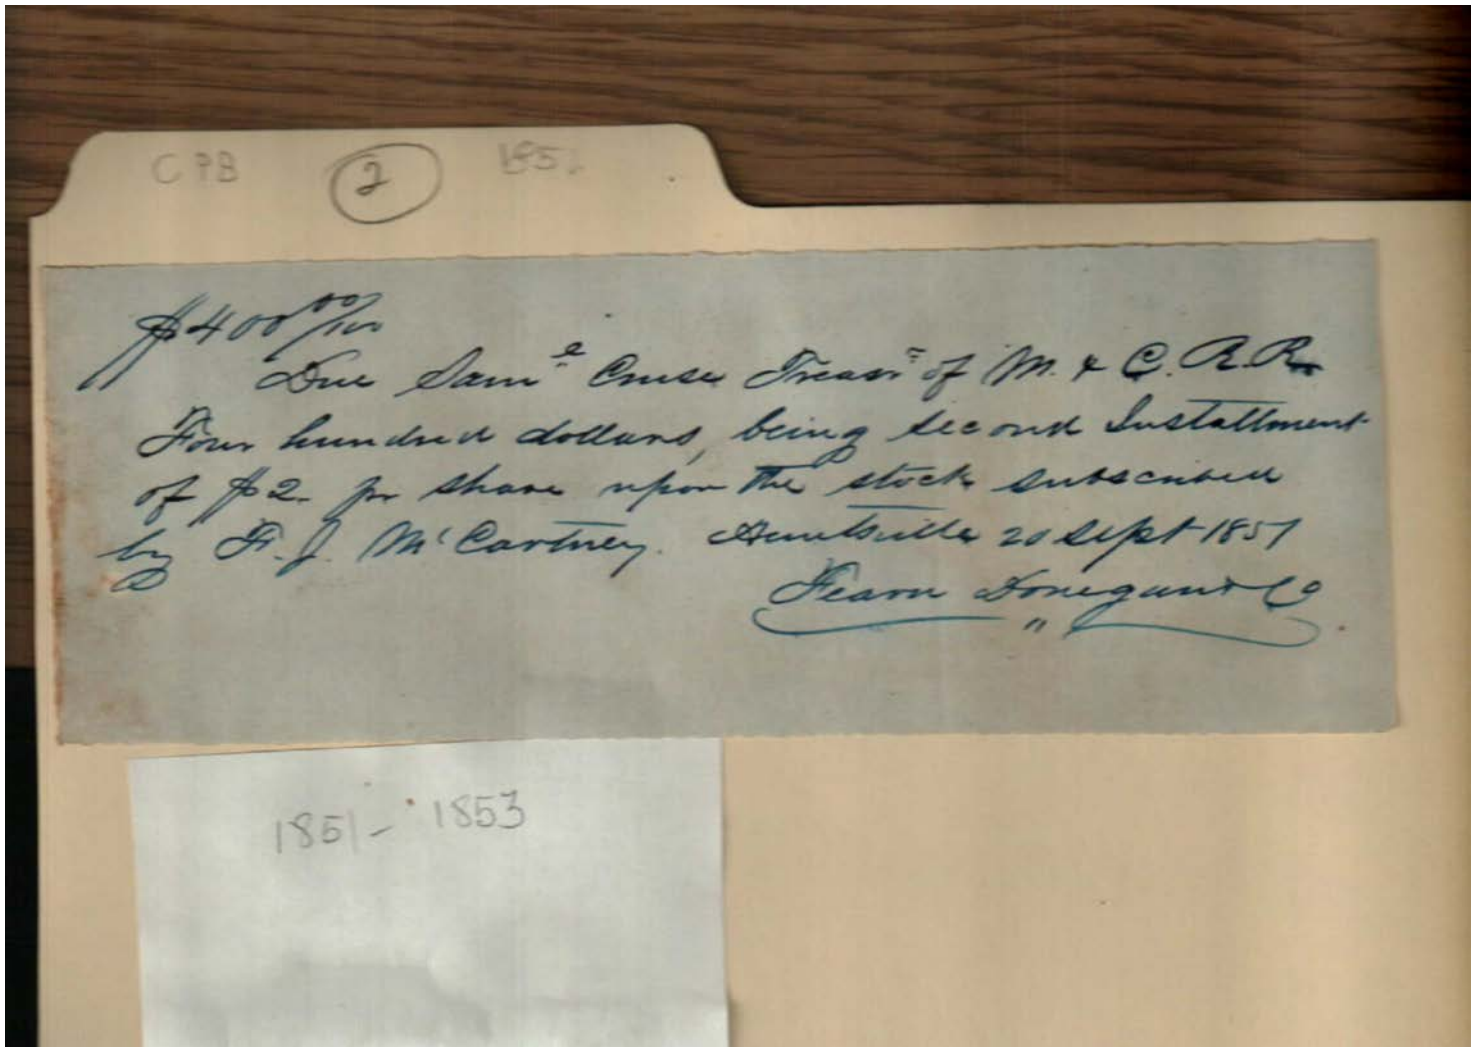 CPB 2 1851
$400 00/100
Due Saml Cruse Treasr of M. & C. R. R.
Four hundred dollars, being second Installment
of $2. pr share upon the stock subscribed
by F. J. McCartney. Huntsville 20 Sept 1851
Fearn Donegan & Co
1851 - 1853